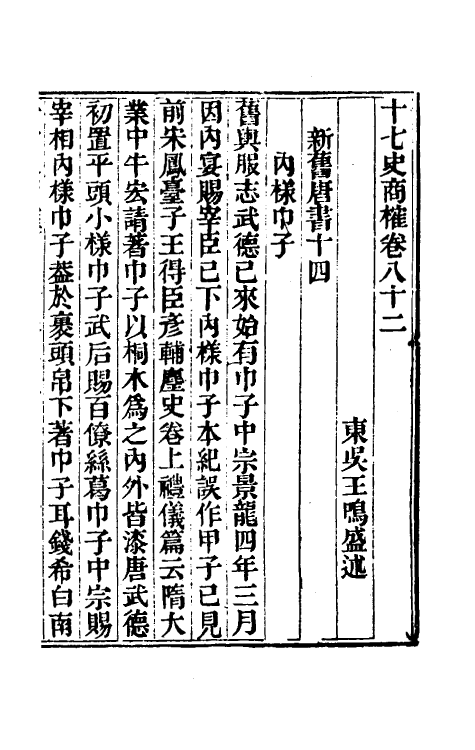 十七史商榷卷八十二
東吳王鳴盛述
新舊唐書十四
內樣巾子
舊輿服志武德已來始有巾子中宗景龍四年三月
因內宴賜宰臣已下內樣巾子本紀誤作甲子已見
前宋鳳臺子王得臣彥輔麈史卷上禮儀篇云隋大
業中牛宏請著巾子以桐木爲之內外皆漆唐武德
初置平頭小樣巾子武后賜百僚絲葛巾子中宗賜
宰相內樣巾子葢於裹頭帛下著巾子耳錢希白南